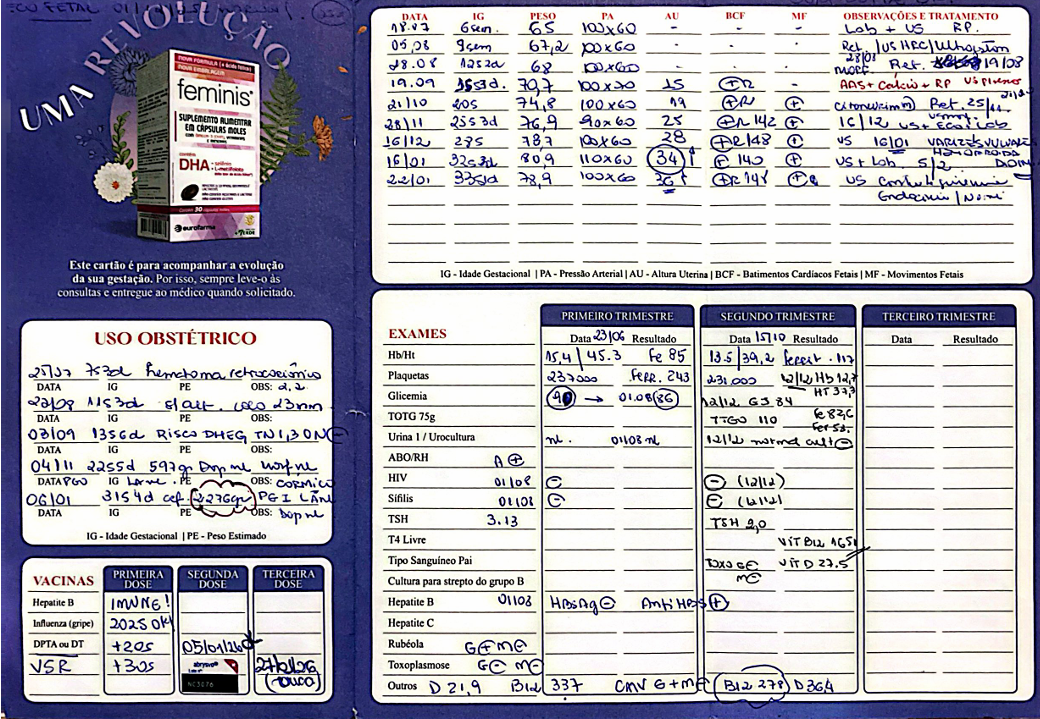 ECO FETAL 01/12
UMA REVOLUÇÃO
NOVA FÓRMULA (+ ácido fólico)
NOVA EMBALAGEM
feminis®
SUPLEMENTO ALIMENTAR
EM CÁPSULAS MOLES
DHA
Contém 30 cápsulas
eurofarma
Este cartão é para acompanhar a evolução
da sua gestação. Por isso, sempre leve-o às
consultas e entregue ao médico quando solicitado.
DATA IG PESO PA AU BCF MF OBSERVAÇÕES E TRATAMENTO
18.07 6sem. 65 100x60 - - - Lab + US RP.
05.08 9sem 67,2 100x60 - - - Ret. /US HRC/
28.08 12s2d 68 100x60 - - - 28/08 MORF. Ret. 19/08
19.09 15s3d. 70,7 100x70 15 + R AAS + Calcio + RP
21/10 20s 74,8 100x60 19 + R + Ret. 25/11
28/11 25s3d 76,9 90x60 25 + R 142 + 16/12 US + Eco + Lab
16/12 28s 78,7 100x60 28 + R 148 + US 16/01 VARIZES
16/01 32s3d 80,9 110x60 34↑ + 140 + US + Lab 5/2
22/01 33s1d 78,9 100x60 36↑ + R 148 + US
IG - Idade Gestacional | PA - Pressão Arterial | AU - Altura Uterina | BCF - Batimentos Cardíacos Fetais | MF - Movimentos Fetais
USO OBSTÉTRICO
25/07 7s3d hematoma retrocoriônico
DATA IG PE OBS: 2,2
22/08 11s3d s/alt. colo 23mm
DATA IG PE OBS:
03/09 13s6d RISCO DHEG TN1,3 ON+
DATA IG PE OBS:
04/11 22s5d 597g Dop nl morf nl
DATA IG PE OBS: CORMICO
06/01 31s4d cef. 2276g PGI LAnl
DATA IG PE OBS: Dop nl
IG - Idade Gestacional | PE - Peso Estimado
VACINAS PRIMEIRA DOSE SEGUNDA DOSE TERCEIRA DOSE
Hepatite B IMUNE!
Influenza (gripe) 2025 OK
DPTA ou DT +20s 05/01/26
VSR +30s abrysvo
EXAMES PRIMEIRO TRIMESTRE SEGUNDO TRIMESTRE TERCEIRO TRIMESTRE
Data 23/06 Resultado Data 15/10 Resultado Data Resultado
Hb/Ht 15,4 / 45.3 Fe 85 13.5 / 39,2 Ferrit. 117
Plaquetas 237000 FERR. 243 231.000 12/12 Hb 12,7
HT 37,3
Glicemia 90 → 01.08 (86) 12/12 GJ 84
TOTG 75g TTGO 110 Fe 82,6
Fer 53.
Urina 1 / Urocultura nl. 01/08 nl 12/12 normal cult -
ABO/RH A +
HIV 01/08 - - (12/12)
Sífilis 01/08 - - (12/12)
TSH 3.13 TSH 2,0
T4 Livre VIT B12 165
Tipo Sanguíneo Pai TOXO G - VIT D 27.5
M -
Cultura para strepto do grupo B
Hepatite B 01/08 HBsAg - Anti HBS +
Hepatite C
Rubéola G + M -
Toxoplasmose G - M -
Outros D 21,9 B12 337 CMV G + M - B12 278 D 36,4